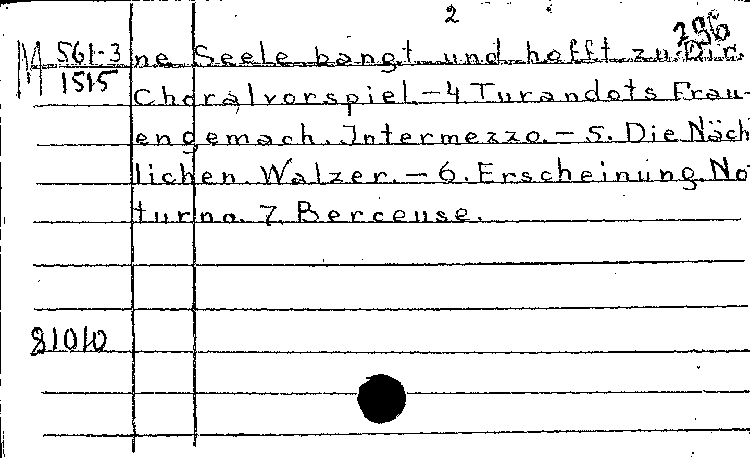 2
296
M 561-3 ne Seele bangt und hofft zu Dir.
1515 Choralvorspiel.-4 Turandots Frau-
engemach. Intermezzo.-5. Die Näch
lichen. Walzer.-6. Erscheinung. No
turno. 7. Berceuse.
81010